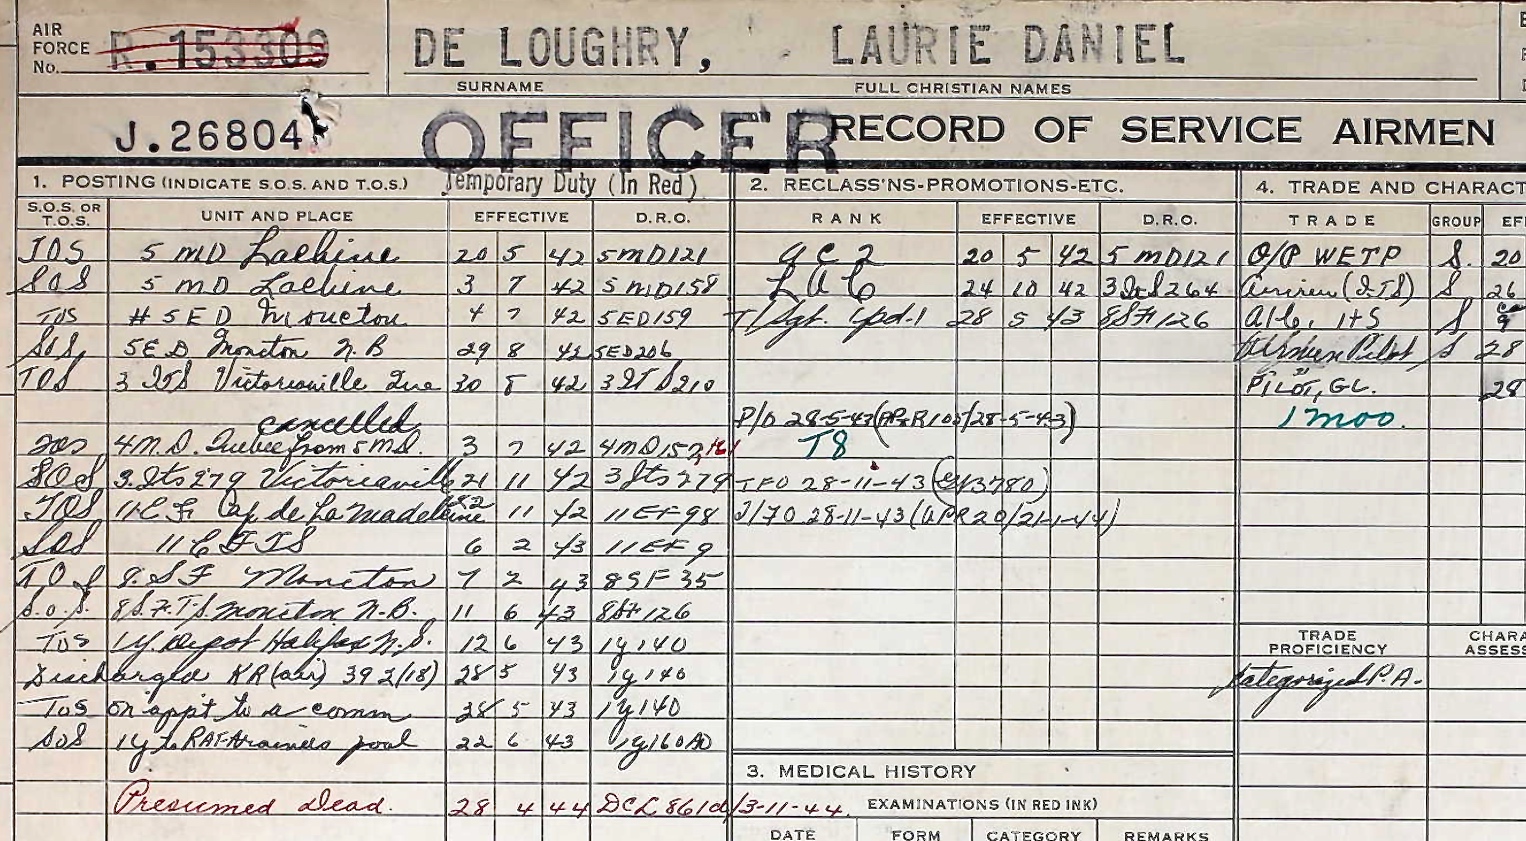 AIR FORCE No. R.153309 DE LOUGHRY, LAURIE DANIEL
SURNAME FULL CHRISTIAN NAMES
J.26804 OFFICER RECORD OF SERVICE AIRMEN
1. POSTING (INDICATE S.O.S. AND T.O.S.) Temporary Duty (In Red) 2. RECLASS'NS-PROMOTIONS-ETC. 4. TRADE AND CHARACT
S.O.S. OR T.O.S. UNIT AND PLACE EFFECTIVE D.R.O. RANK EFFECTIVE D.R.O. TRADE GROUP EF
TOS 5 MD Lachine 20 5 42 5MD121 AC2 20 5 42 5 MD121 O/P WETP S. 20
SOS 5 MD Lachine 3 7 42 5 MD158 LAC 24 10 42 3 Its 264 Aircrew (ITS) S 26
TOS # 5 ED Moncton 4 7 42 5ED159 T/Sgt. 1pd-1 28 5 43 8SF126 S 9
SOS 5ED Moncton N.B 29 8 42 5ED206 Airmen Pilot S 28
TOS 3 ITS Victoriaville Que 30 8 42 3 ITS210 PILOT, GL. 28
cancelled P/O 28-5-43 /28-5-43) 1 moo.
TOS 4 M.D. Quebec from 5 MD. 3 7 42 4MD157, 161 T8
SOS 3 Its 279 Victoriaville 21 11 42 3 Its 279 TFO 28-11-43 (3780)
TOS 11 E F Cap de La Madeleine 22 11 42 11EF98 T/FO 28-11-43 (APR20/21-1-44)
SOS 11 EFTS 6 2 43 11EF9
TOS 8 SF Moncton 7 2 43 8SF35
S.O.S. 8S.F.T.S. Moncton N.B. 11 6 43 8SF126
TOS 1Y Depot Halifax N.S. 12 6 43 1Y140
Discharged KR(air) 392/(18) 28 5 43 1Y140
TOS on appt to a comm 28 5 43 1Y140
SOS 1Y to RAF trainees pool 22 6 43 1Y160AO
TRADE PROFICIENCY CHARA ASSESS
Categorized P.A.
Presumed Dead. 28 4 44 DCL861d/3-11-44.
3. MEDICAL HISTORY
EXAMINATIONS (IN RED INK)
DATE FORM CATEGORY REMARKS